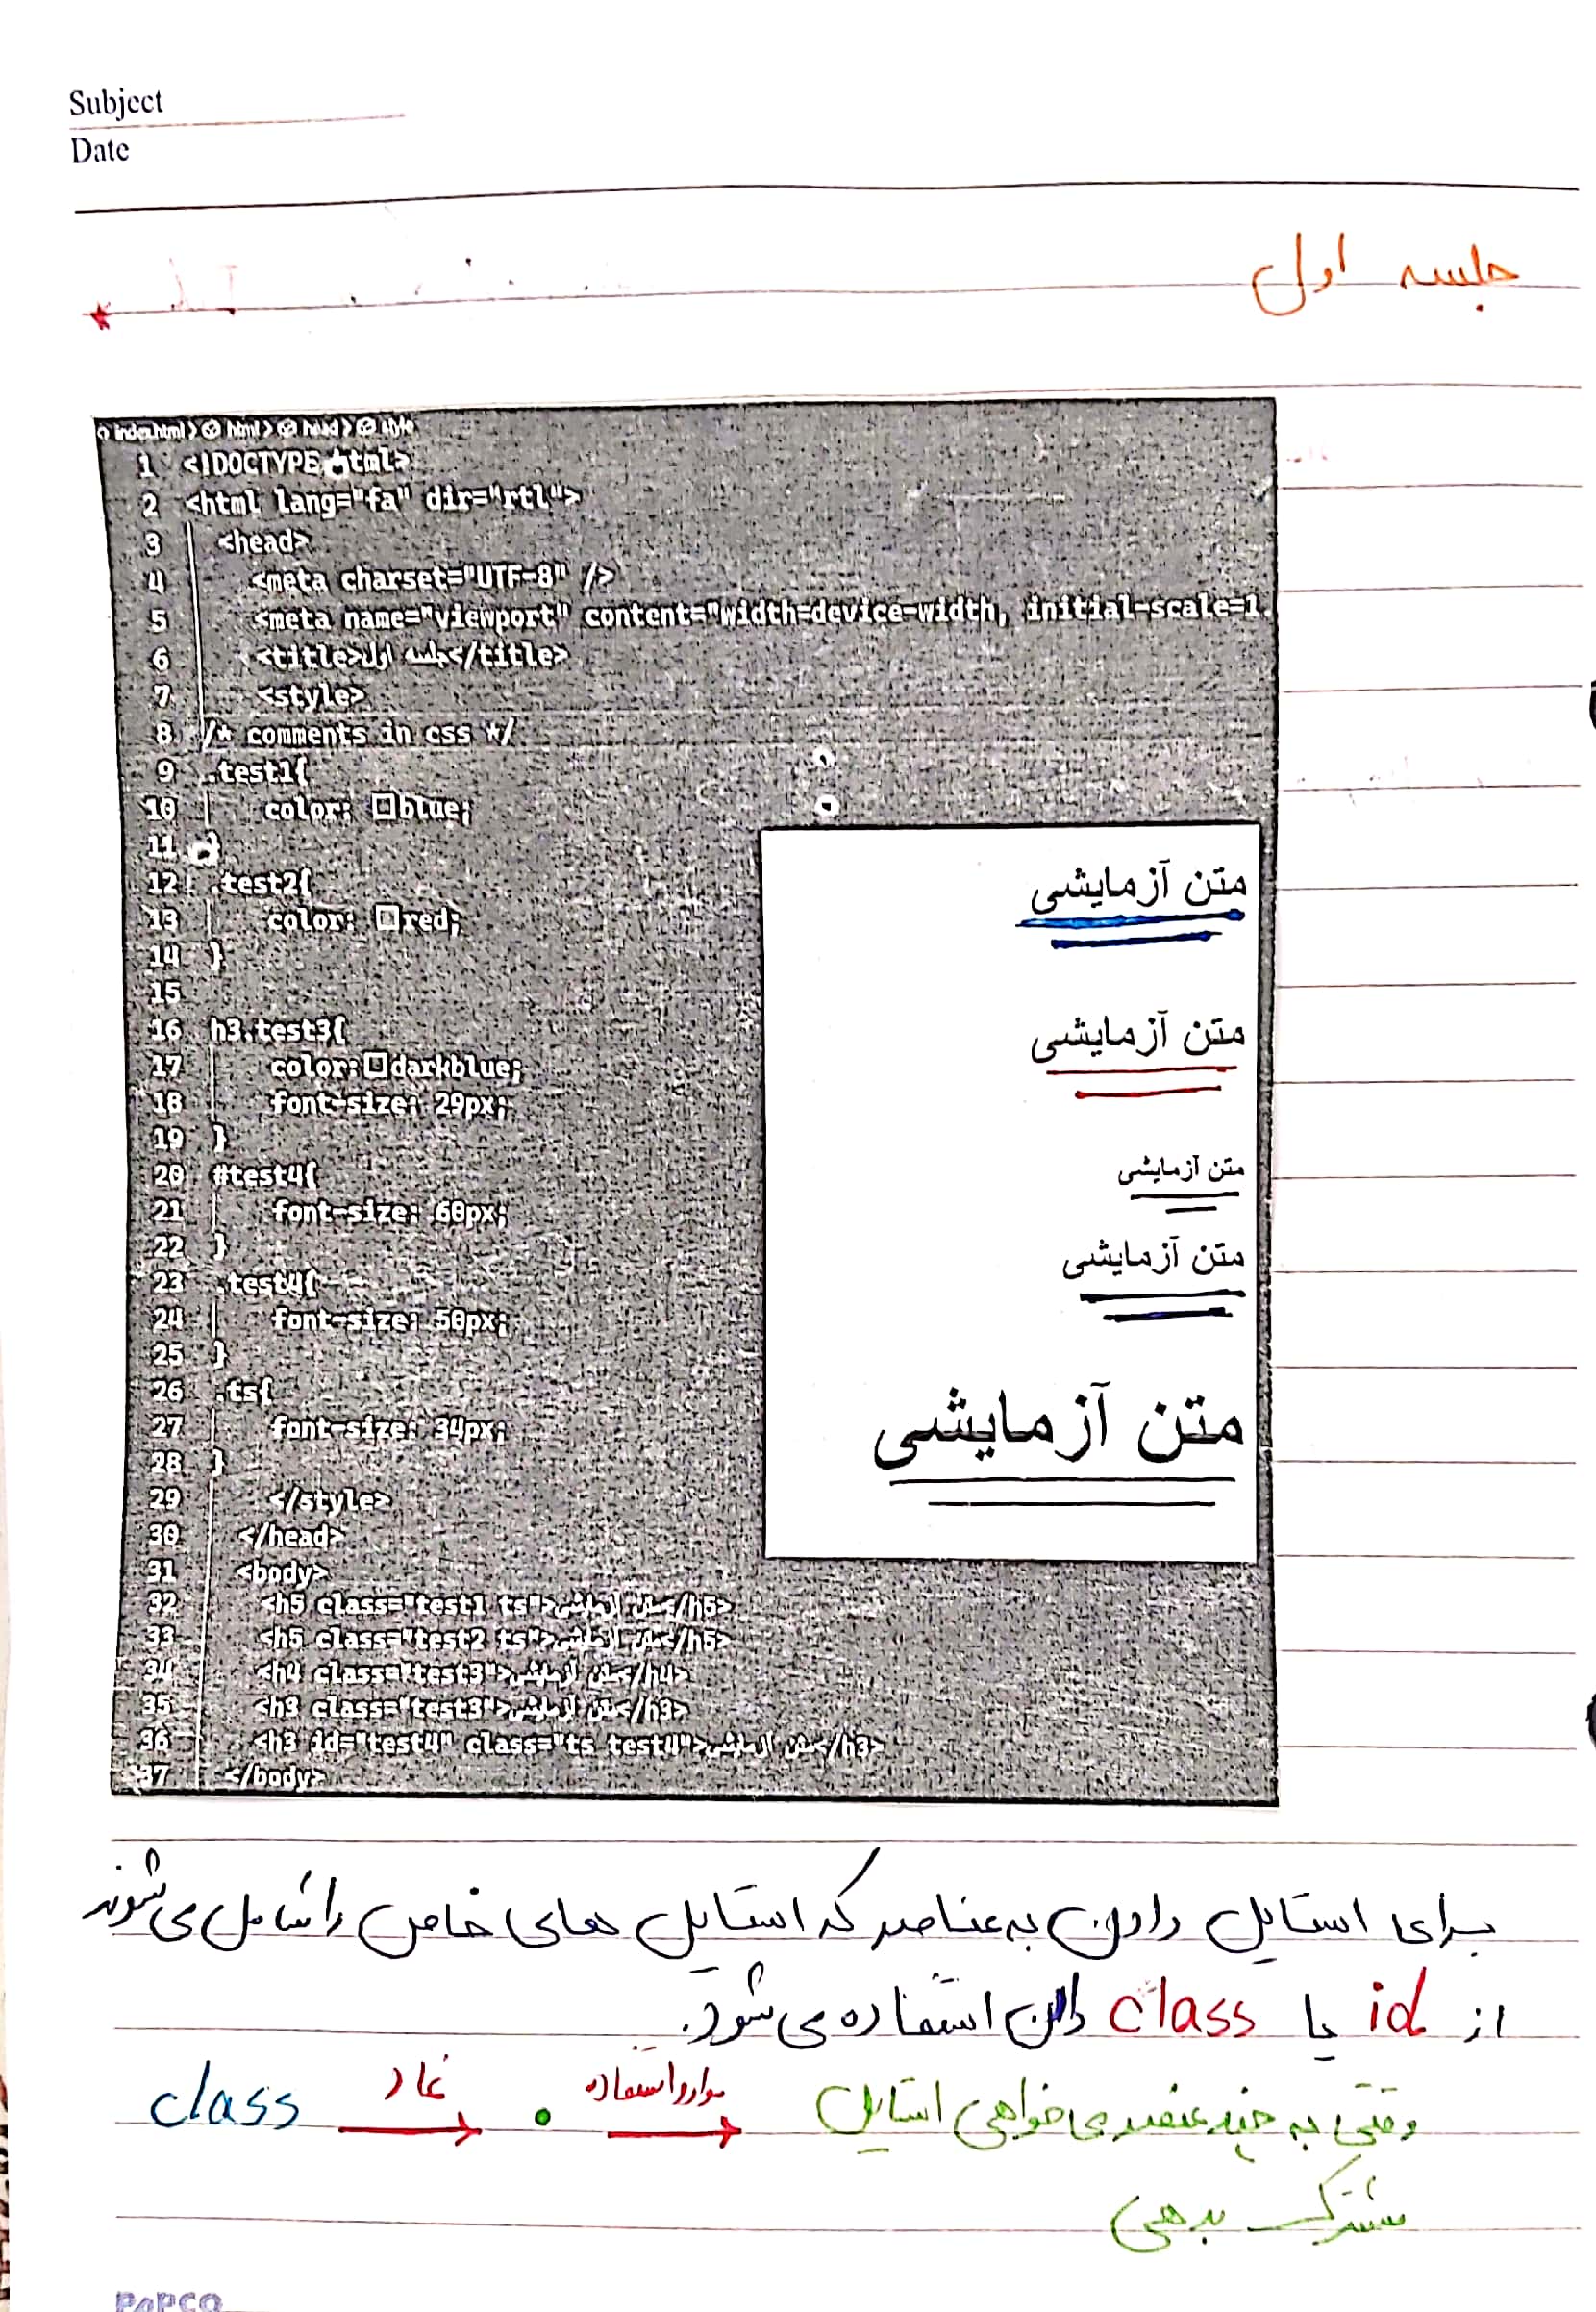 Subject
Date
جلسه اول
index.html > html > head > style
1 <!DOCTYPE html>
2 <html lang="fa" dir="rtl">
3 <head>
4 <meta charset="UTF-8" />
5 <meta name="viewport" content="width=device-width, initial-scale=1.
6 <title>جلسه اول</title>
7 <style>
8 /* comments in css */
9 .test1{
10 color: blue;
11 }
12 .test2{
13 color: red;
14 }
15
16 h3.test3{
17 color: darkblue;
18 font-size: 29px;
19 }
20 #test4{
21 font-size: 60px;
22 }
23 .test4{
24 font-size: 50px;
25 }
26 .ts{
27 font-size: 34px;
28 }
29 </style>
30 </head>
31 <body>
32 <h5 class="test1 ts">متن آزمایشی</h5>
33 <h5 class="test2 ts">متن آزمایشی</h5>
34 <h4 class="test3">متن آزمایشی</h4>
35 <h3 class="test3">متن آزمایشی</h3>
36 <h3 id="test4" class="ts test4">متن آزمایشی</h3>
37 </body>
متن آزمایشی
متن آزمایشی
متن آزمایشی
متن آزمایشی
متن آزمایشی
برای استایل دادن به عناصر که استایل های خاص را شامل می شوند
از id یا class دادن استفاده می شود.
class نماد . موارد استفاده وقتی به چند عنصر می خواهی استایل
مشترک بدهی
PAPCO